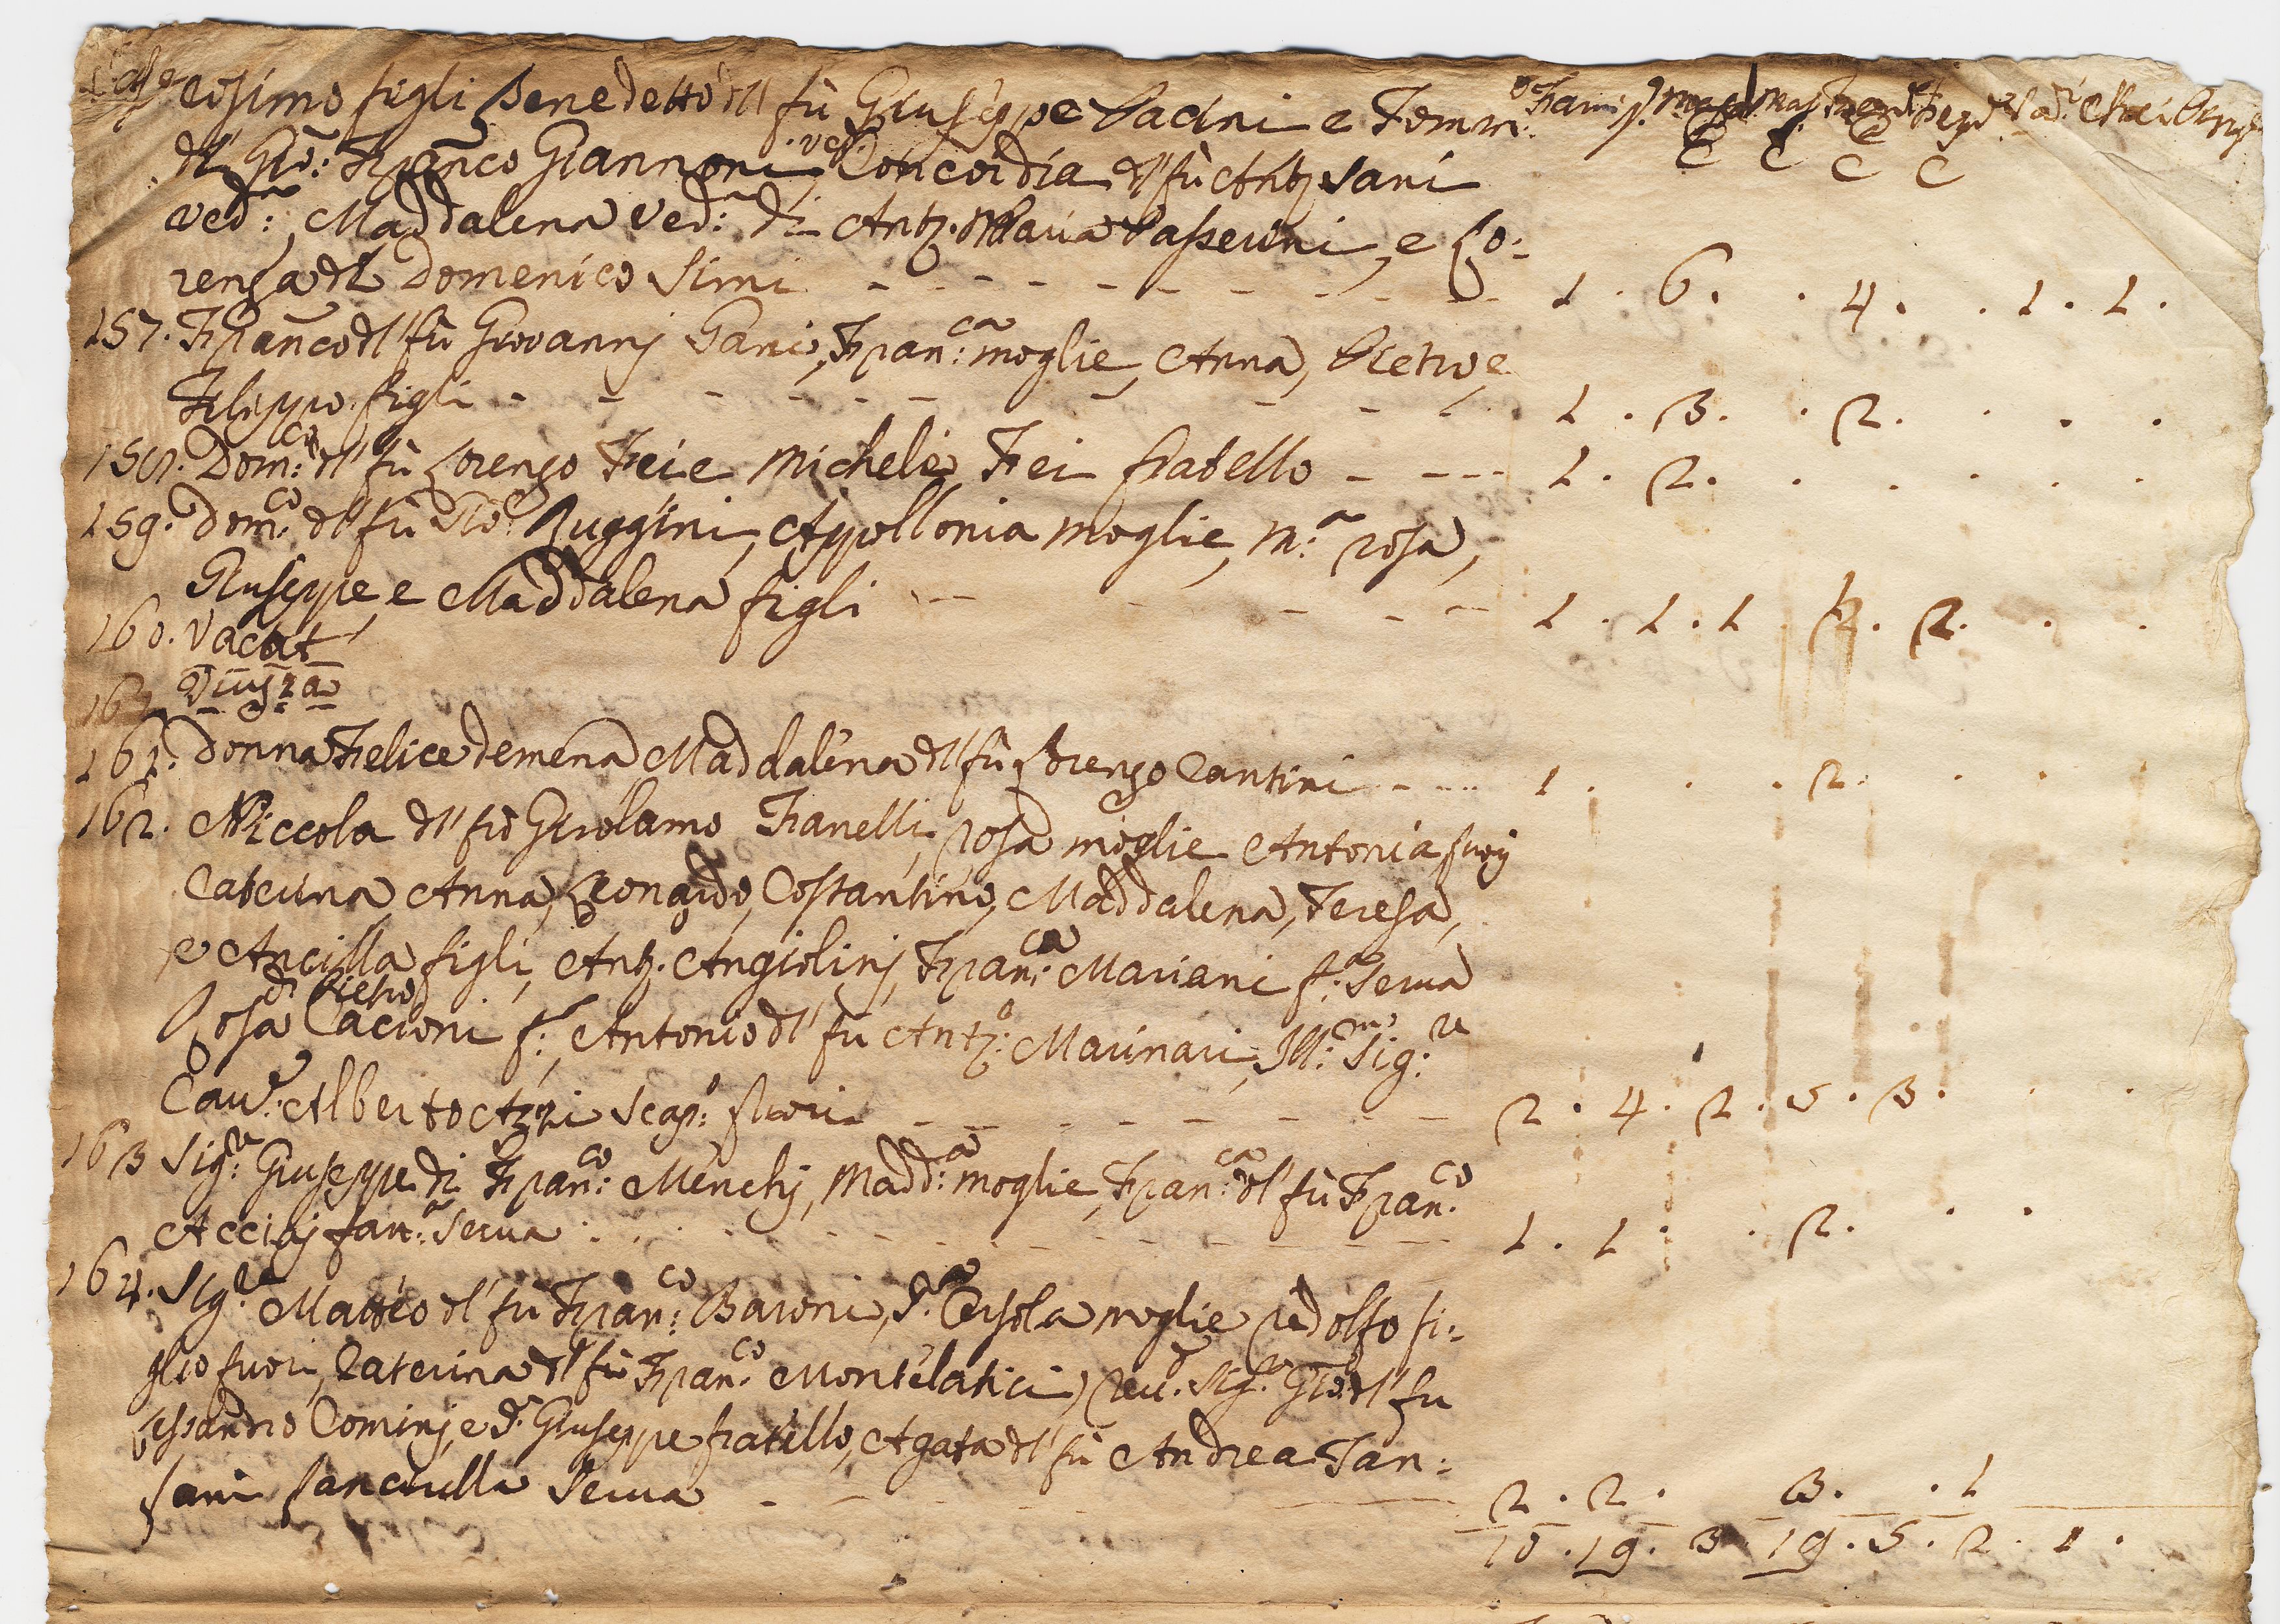 Case
Cosimo figli Benedetto dl fù Giuseppe Pacini e Femm:
dl Gio: Franco Giannoni, Concordia dl fù Anto: Sani
ved:a, Maddalena Ved:a di Anto: Maria Passerini, e Lo:
renza dl Domenico Simi - - - - - - - - - 1 . 6 . . 4 . . 1 . 1 .
157. Franco dl fù Giovannj Gani, Fran:ca moglie, Anna, Pietro, e
Filippo figli - - - - - - - - - 1 . 3 . . 2 . . . .
158. Dom:co dl fù Lorenzo Fei e Michele Fei fratello - - - - 1 . 2 . . . . . .
159. Dom:co dl fù Gio: Ruggini, Appollonia moglie, M:a rosa,
Giuseppe, e Maddalena figli - - - - - 1 . 1 . 1 2 . 2 . . .
160. Vacat
161. Donna Felice demena Maddalena dl fù Lorenzo Cantini - - - - 1 . . . 2 . . .
162. Niccola dl fù Girolamo Fanelli, rosa moglie Antonia fuorj
Caterina, Anna, Leonardo, Costantino, Maddalena, Teresa,
e Ancilla figli, Anto: Angiolinj, Fran:ca Mariani f:a serva
di Pietro
Rosa Cacioni f:a, Antonio dl fù Anto: Marinari, Ill:mo Sig:re
Cav:e Alberto Azzi Scap:o fuori - - - - - - - - 2 . 4 . 2 . 5 . 3 . . .
163 Sig:re Giuseppe di Fran:co Menchj, Madd:a moglie, Fran:ca dl fù Fran:co
Acciaj fan:a serva : . . - - - - - - - - 1 . 1 . . 2 . . .
164. Sig:re Matteo dl fù Fran:co Baroni, S:ra Orsola moglie ridolfo fi:
glio fuori, Caterina dl fù Fran:co Montelatici, rev:do Sig:re Gio: dl fu
lessandro Cominj, e S:r Giuseppe fratello, Agata dl fù Andrea Tan:
sani fanciulla Serva - - - - 2 . 2 . 3 . . 1
10 . 19 . 3 . 19 . 5 . 2 . 1 .